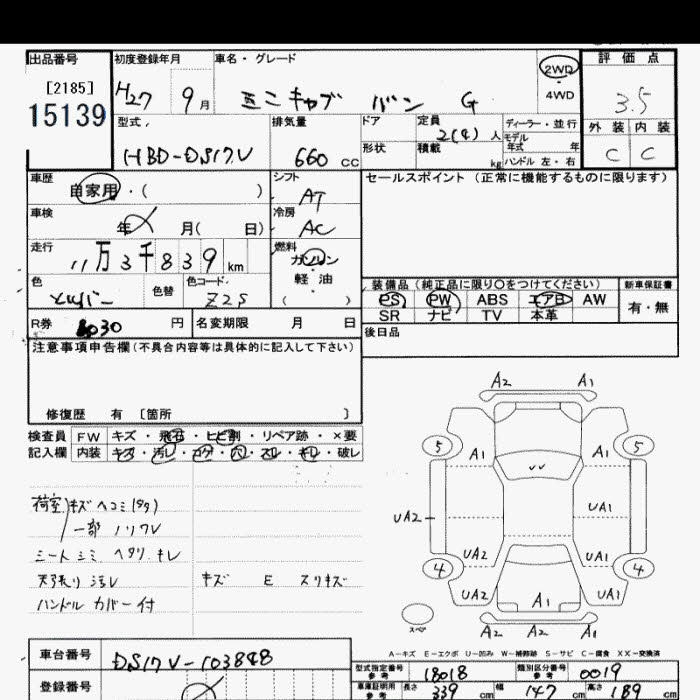 出品番号 初度登録年月 車名・グレード 2WD 評価点
[2185] H27 9月 ミニキャブ バン G ・4WD 3.5
15139 型式 排気量 ドア 定員 2(4)人 ディーラー・並行 外装 内装
HBD-DS17V 660 CC 形状 積載 kg モデル年式 年 ハンドル 左・右 C C
車歴 自家用・( ) シフト AT セールスポイント (正常に機能するものに限ります)
車検 年 月( 日) 冷房 AC
走行 11万3千839km 燃料 ガソリン
軽油
色 シルバー 色替 色コード Z2S ( ) 装備品 (純正品に限り○をつけてください) 新車保証書
PS PW ABS エアB AW 有・無
R券 8030 円 名変期限 月 日 SR ナビ TV 本革
注意事項申告欄(不具合内容等は具体的に記入して下さい) 後日品
修復歴 有 [箇所 ]
検査員 FW キズ・飛石・ヒビ割・リペア跡・×要
記入欄 内装 キズ・汚レ・コゲ・穴・スレ・キレ・破レ
荷室 キズ ヘコミ(多)
一部 ノリウレ
シート シミ ヘタリ キレ
天張り 汚レ キズ E スリキズ
ハンドル カバー付
A2 A1
5 A1 5
UA1
UA2
UA2 UA1
4 4
UA2 A1 UA1
スペア A2 A2 A1
A-キズ E-エクボ U-凹み W-補修跡 S-サビ C-腐食 XX-交換済
車台番号 DS17V-103848 型式指定番号 参考 18018 類別区分番号 参考 0019
登録番号 車庫証明用 参考 長さ 339 cm 幅 147 cm 高さ 189 cm